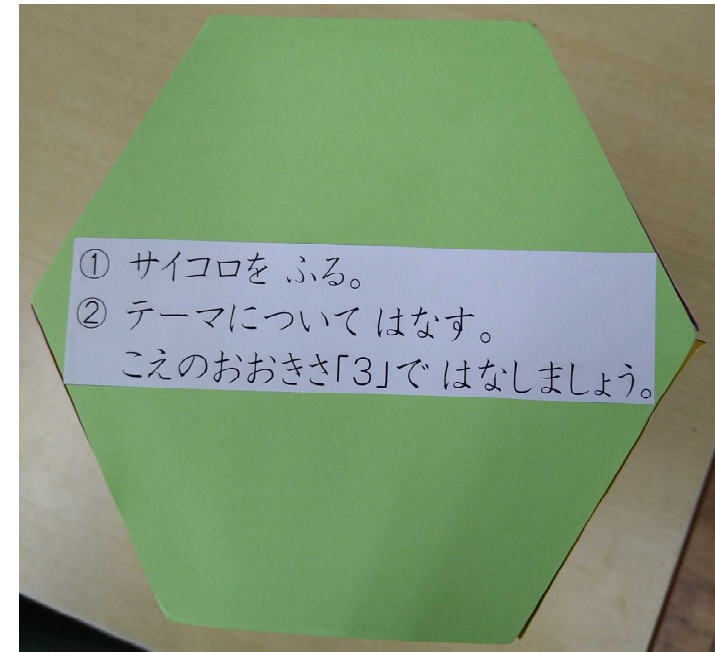 ① サイコロを ふる。
② テーマについて はなす。
こえのおおきさ「3」で はなしましょう。